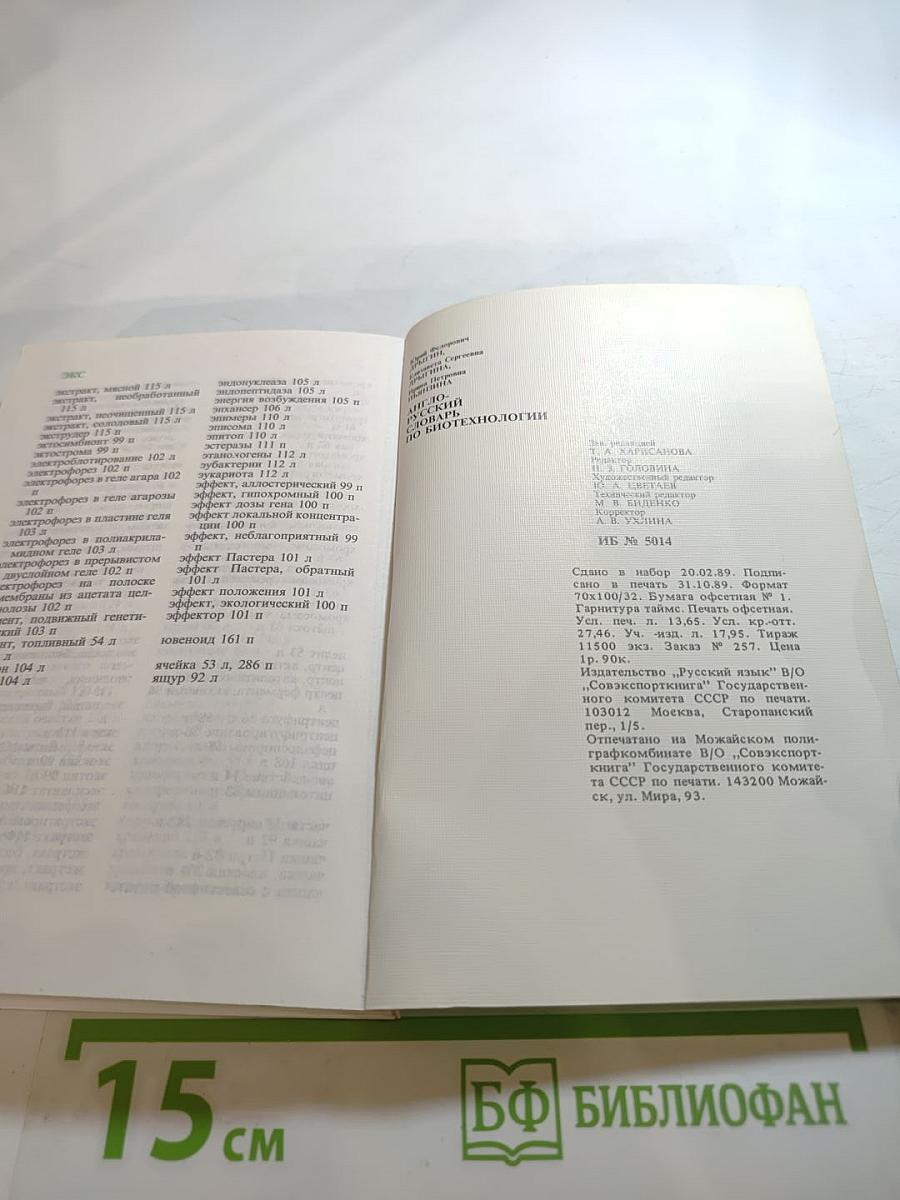 ЭКС
экстракт, мясной 115 л
экстракт, необработанный
115 л
экстракт, неочищенный 115 л
экстракт, солодовый 115 л
экструдер 115 п
эктосимбионт 99 п
эктострома 99 п
электроблотирование 102 л
электрофорез 102 п
электрофорез в геле агара 102
п
электрофорез в геле агарозы
102 п
электрофорез в пластине геля
103 л
электрофорез в полиакрила-
мидном геле 103 л
электрофорез в прерывистом
двуслойном геле 102 л
ектрофорез на полоске
мембраны из ацетата цел-
юлозы 102 п
мент, подвижный генети-
ский 103 п
нт, топливный 54 л
л
он 104 л
104 л
эндонуклеаза 105 л
эндопептидаза 105 л
энергия возбуждения 105 п
энхансер 106 л
эпимеры 110 л
эписома 110 л
эпитоп 110 л
эстеразы 111 п
этанологены 112 л
эубактерии 112 л
эукариота 112 л
эффект, аллостерический 99 п
эффект, гипохромный 100 п
эффект дозы гена 100 п
эффект локальной концентра-
ции 100 п
эффект, неблагоприятный 99
п
эффект Пастера 101 л
эффект Пастера, обратный
101 л
эффект положения 101 л
эффект, экологический 100 п
эффектор 101 п
ювеноид 161 п
ячейка 53 л, 286 п
ящур 92 л
Юрий Федорович
ДРЫГИН,
Елизавета Сергеевна
ДРЫГИНА,
Ирина Петровна
АНГЛО-
РУССКИЙ
СЛОВАРЬ
ПО БИОТЕХНОЛОГИИ
Зав. редакцией
Т. А. ХАРИСАНОВА
Редактор
Н. З. ГОЛОВИНА
Художественный редактор
Ю. А. ЦВЕТАЕВ
Технический редактор
М. В. БИДЕНКО
Корректор
А. В. УХЛИНА
ИБ № 5014
Сдано в набор 20.02.89. Подпи-
сано в печать 31.10.89. Формат
70х100/32. Бумага офсетная № 1.
Гарнитура таймс. Печать офсетная.
Усл. печ. л. 13,65. Усл. кр.-отт.
27,46. Уч. -изд. л. 17,95. Тираж
11500 экз. Заказ № 257. Цена
1р. 90к.
Издательство „Русский язык" В/О
„Совэкспорткнига" Государствен-
ного комитета СССР по печати.
103012 Москва, Старопанский
пер., 1/5.
Отпечатано на Можайском поли-
графкомбинате В/О „Совэкспорт-
книга" Государственного комите-
та СССР по печати. 143200 Можай-
ск, ул. Мира, 93.
15 см
БФ БИБЛИОФАН